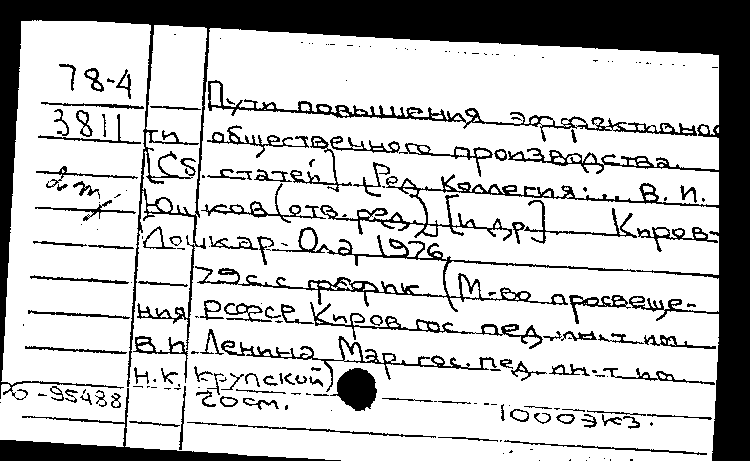 78-4
3811
2 т
Пути повышения эффективнос
ти общественного производства.
[Сб. статей]. [Ред. Коллегия: ... В. И.
Юшков (отв. ред.), [и др.] Киров-
Йошкар-Ола, 1976.
79 с. с график (М-во просвеще-
ния РСФСР. Киров гос. пед. ин.-т им.
В.И Ленина Мар. гос. пед. ин-т им
Н.К. Крупской)
20 ст. 1000 экз.
-95488